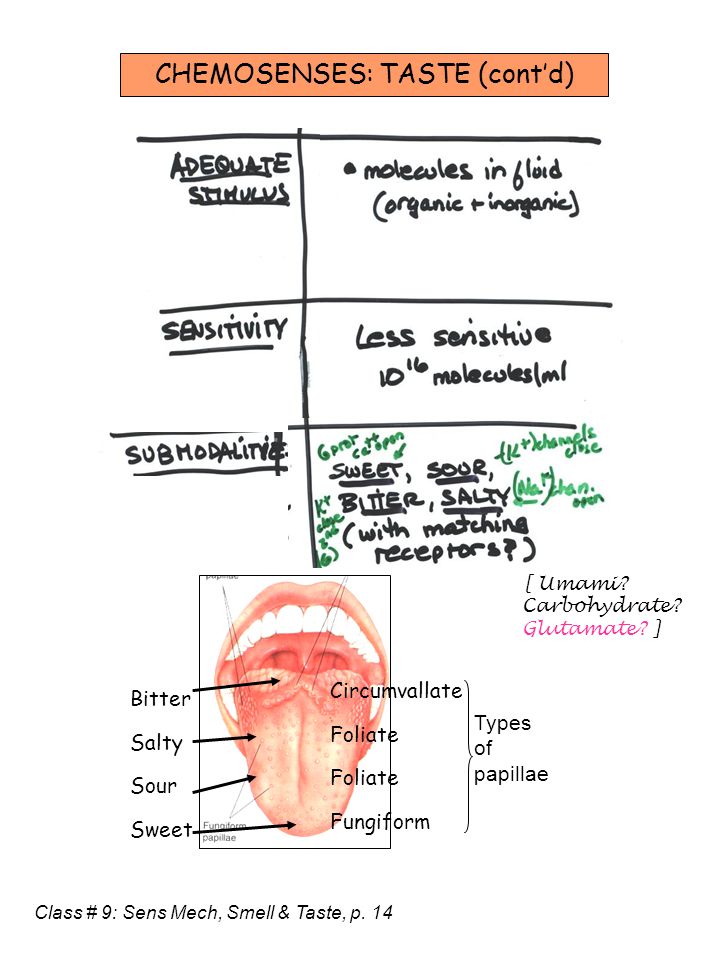 CHEMOSENSES: TASTE (cont'd)
ADEQUATE
STIMULUS
• molecules in fluid
(organic + inorganic)
SENSITIVITY
Less sensitive
10^16 molecules/ml
SUBMODALITIES
G prot
Ca++ open
(K+) channels
close
SWEET, SOUR,
BITTER, SALTY
(Na+) chan.
open
K+
close
(with matching
receptors?)
[ Umami?
Carbohydrate?
Glutamate? ]
papillae
Bitter
Circumvallate
Salty
Foliate
Sour
Foliate
Sweet
Fungiform
Types
of
papillae
Fungiform
papillae
Class # 9: Sens Mech, Smell & Taste, p. 14